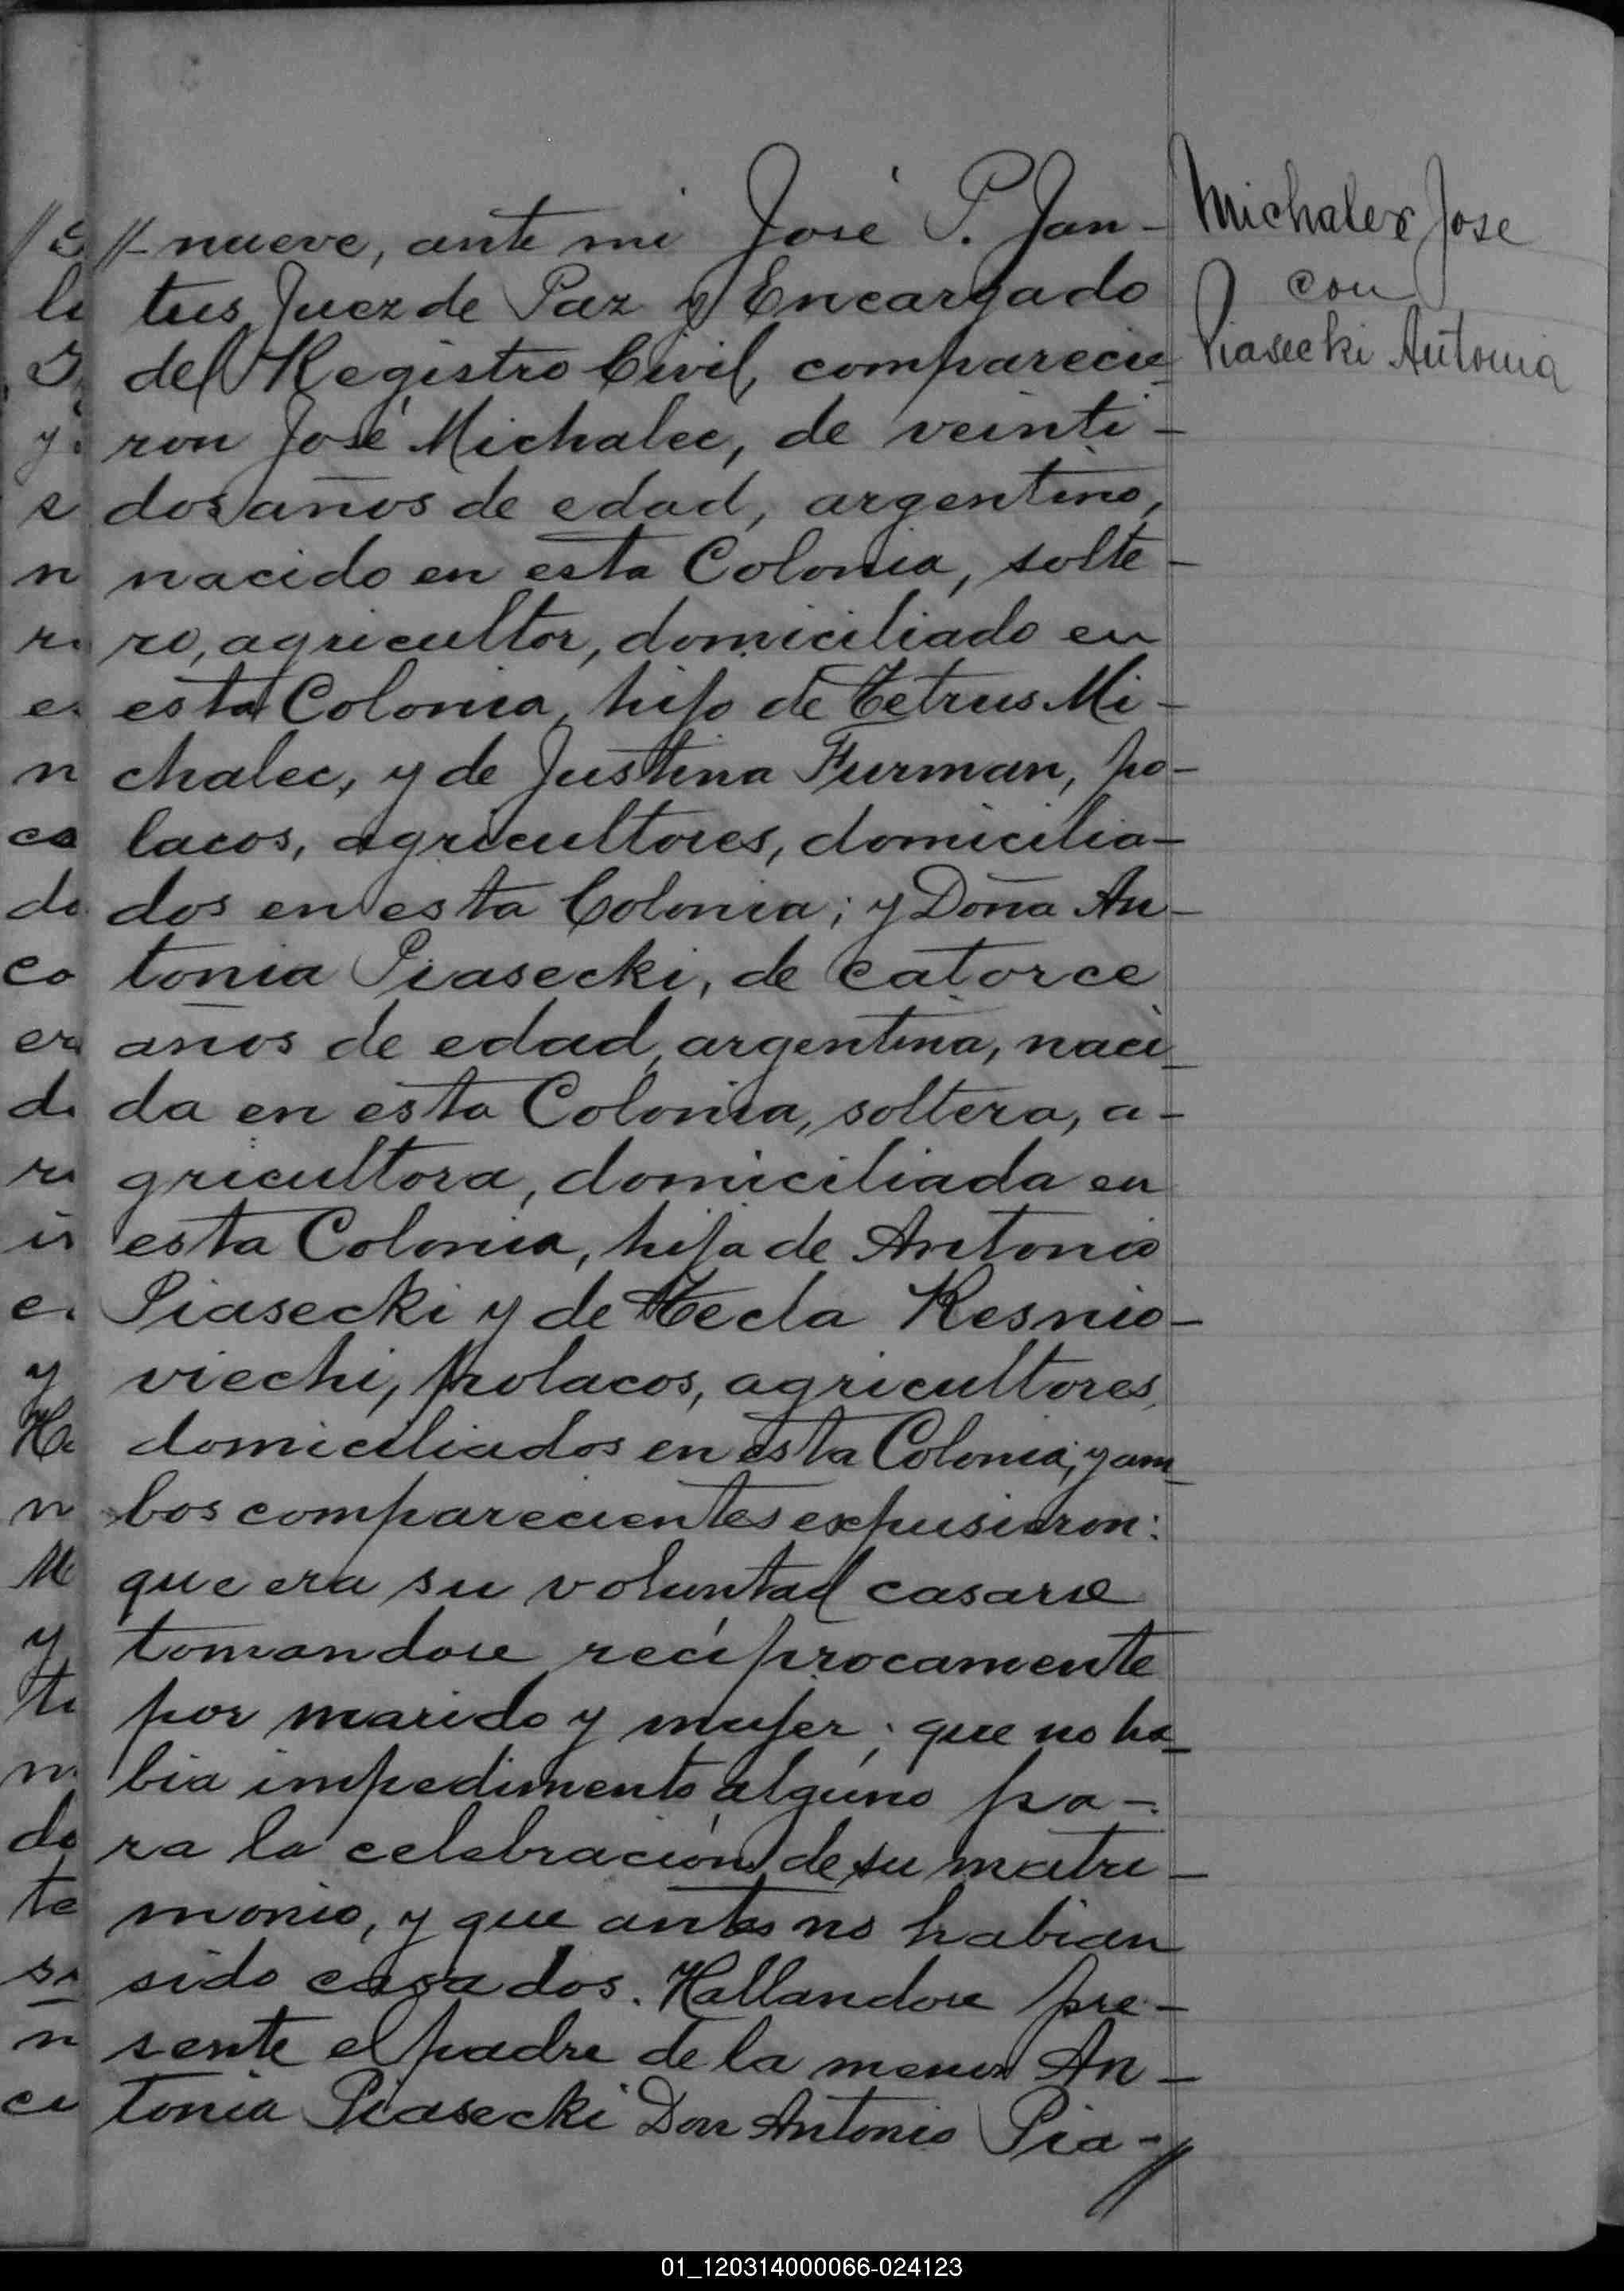 Michalec Jose
con
Piasecki Antonia
//-nueve, ante mi José P. Jan-
tus Juez de Paz y Encargado
del Registro Civil, comparecie-
ron José Michalec, de veinti-
dos años de edad, argentino,
nacido en esta Colonia, solte-
ro, agricultor, domiciliado en
esta Colonia, hijo de Petrus Mi-
chalec, y de Justina Furman, po-
lacos, agricultores, domicilia-
dos en esta Colonia; y Doña An-
tonia Piasecki, de catorce
años de edad, argentina, naci-
da en esta Colonia, soltera, a-
gricultora, domiciliada en
esta Colonia, hija de Antonio
Piasecki y de Tecla Kesnio-
viechi, polacos, agricultores,
domiciliados en esta Colonia; y am-
bos comparecientes expusieron:
que era su voluntad casarse
tomandose recíprocamente
por marido y mujer; que no ha-
bia impedimento alguno pa-
ra la celebración de su matri-
monio, y que antes no habian
sido casados. Hallandose pre-
sente el padre de la menor An-
tonia Piasecki Don Antonio Pia-//
01_120314000066-024123